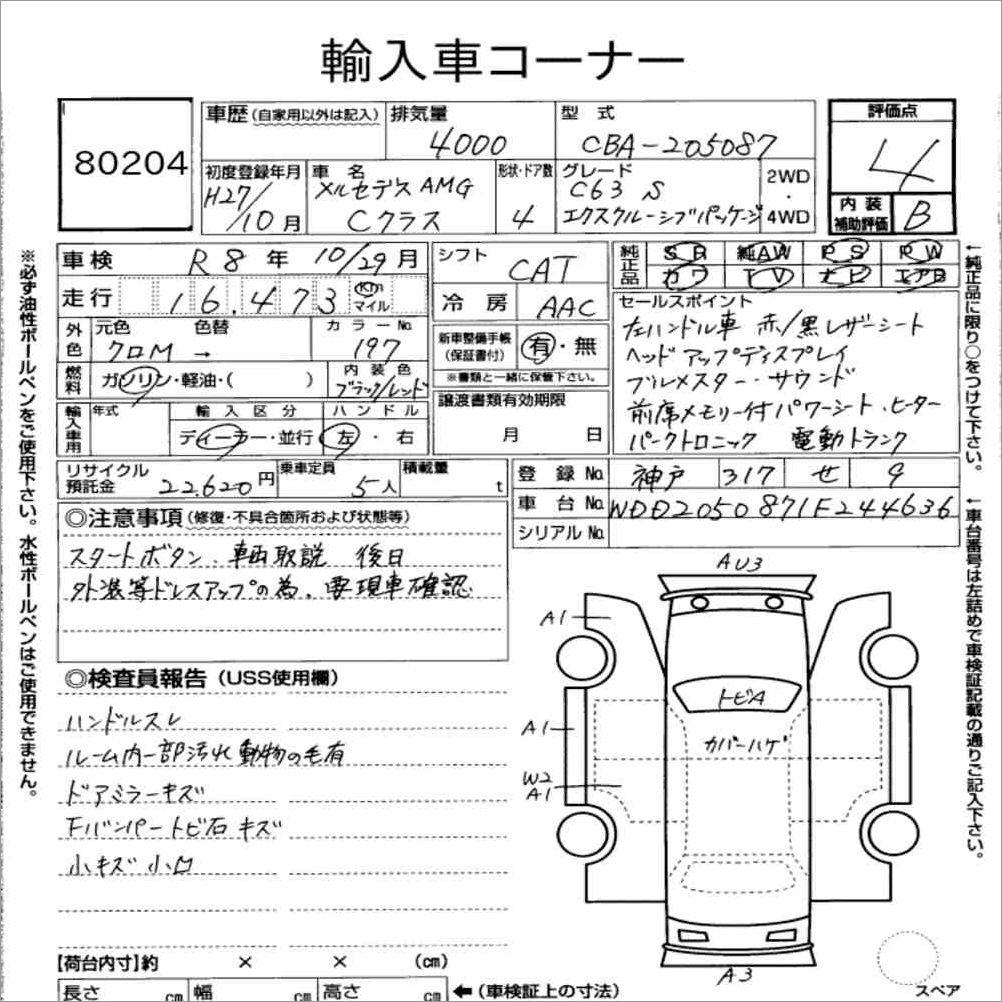 輸入車コーナー
80204
車歴 (自家用以外は記入) 排気量 4000 型式 CBA-205087
評価点 4
初度登録年月 H27/10月 車名 メルセデスAMG Cクラス 形状・ドア数 4 グレード C63 S エクスクルーシブパッケージ 2WD・4WD
内装補助評価 B
車検 R8年10/29月
走行 16,473 Km マイル
シフト CAT
冷房 AAC
純正品 SR 純AW PS PW
カワ TV ナビ エアB
外色 元色 クロM 色替 → カラーNo. 197
燃料 ガソリン・軽油・( ) 内装色 ブラック/レッド
新車整備手帳(保証書付) 有・無
※書類と一緒に保管下さい。
輸入車用 年式 輸入区分 ディーラー・並行 ハンドル 左・右
譲渡書類有効期限
月 日
セールスポイント
左ハンドル車 赤/黒レザーシート
ヘッドアップディスプレイ
ブルメスター・サウンド
前席メモリー付パワーシート・ヒーター
パークトロニック 電動トランク
リサイクル預託金 22,620円 乗車定員 5人 積載量 t
登録No. 神戸 317 せ 9
車台No. WDD2050871F244636
シリアルNo.
◎注意事項 (修復・不具合箇所および状態等)
スタートボタン、車両取説 後日
外装等ドレスアップの為、要現車確認
◎検査員報告 (USS使用欄)
ハンドルスレ
ルーム内一部汚れ 動物の毛有
ドアミラーキズ
Fバンパートビ石キズ
小キズ小凹
AU3
A1
トビA
A1
カバーハゲ
W2
A1
A3
スペア
【荷台内寸】約 × × (cm)
長さ cm 幅 cm 高さ cm ←(車検証上の寸法)
※必ず油性ボールペンをご使用下さい。水性ボールペンはご使用できません。
←純正品に限り○をつけて下さい。
←車台番号は左詰めで車検証記載の通りご記入下さい。